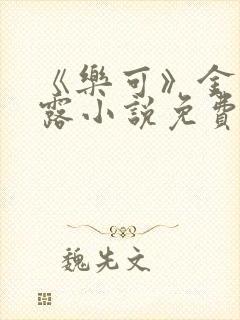 《樂可》金
露小說免費
魏先文